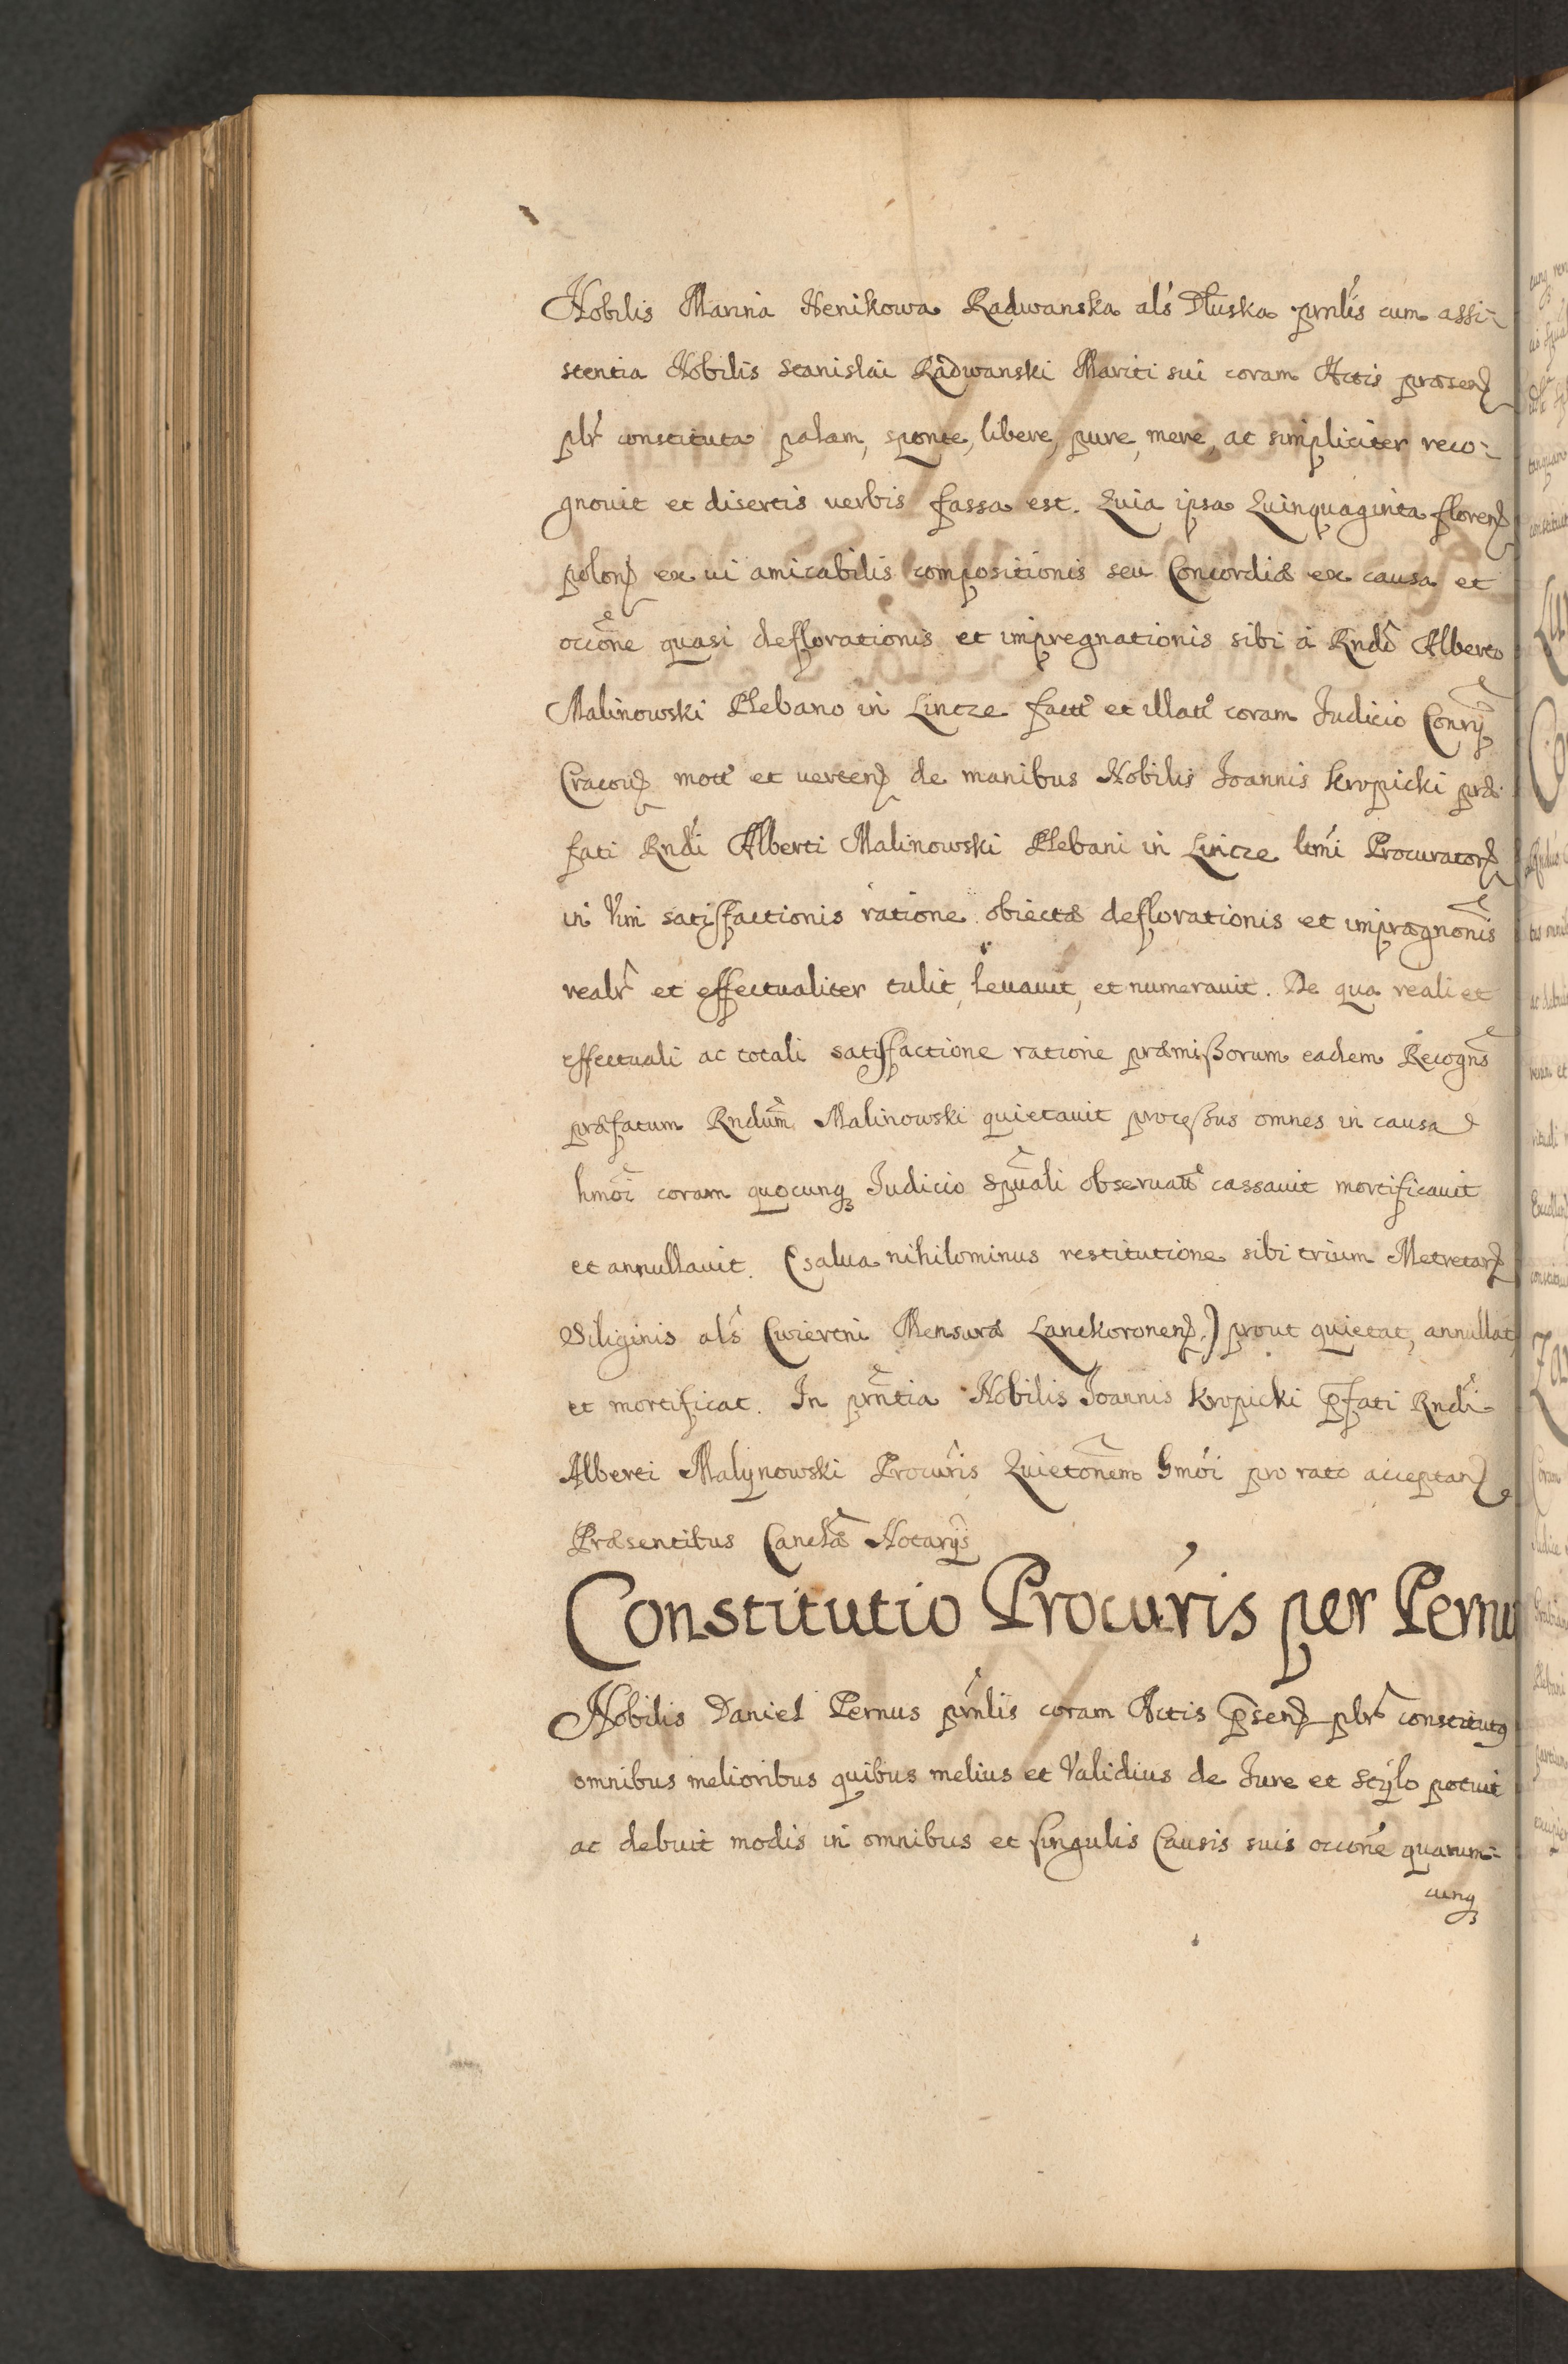 Nobilis Marina Henikowa Radwanska als Dłuska prnlis cum assi-
stentia Nobilis Stanislai Radwanski Mariti sui coram Actis praesen
plr constituta palam, sponte, libere, pure, mere, ac simpliciter reco-
gnouit et disertis uerbis fassa est. Quia ipsa Quinquaginta floren
polon ex ui amicabilis compositionis seu Concordiæ ex causa et
occone quasi deflorationis et impregnationis sibi à Rndo Alberto
Malinowski Plebano in Lincze fact et illat coram Judicio Conrij
Cracou mot et uerten de manibus Nobilis Joannis Kropicki præ-
fati Rndi Alberti Malinowski Plebani in Lincze ltmi Procurator
in Vim satisfactionis ratione obiectæ deflorationis et imprægnonis
realr et effectualiter tulit, leuauit, et numerauit. De qua reali et
effectuali ac totali satisfactione ratione præmissorum eadem Recogns
præfatum Rndum Malinowski quietauit processus omnes in causa
hmoi coram quocunq Judicio Spuali obseruat cassauit mortificauit
et annullauit. (salua nihilominus restitutione sibi trium Metretar
Siliginis als Cwiertni Mensuræ Lanckoronen.) prout quietat, annullat,
et mortificat. In prntia Nobilis Joannis Kropicki pfati Rndi
Alberti Malynowski Procuris Quietonem hmoi pro rato acceptan
Præsentibus Canclæ Notarijs
Constitutio Procuris per Pernu
Nobilis Daniel Pernus prnlis coram Actis psen plr constitutq
omnibus melioribus quibus melius et Validius de Jure et Stylo potuit
ac debuit modis in omnibus et singulis Causis suis occone quarum-
cunq